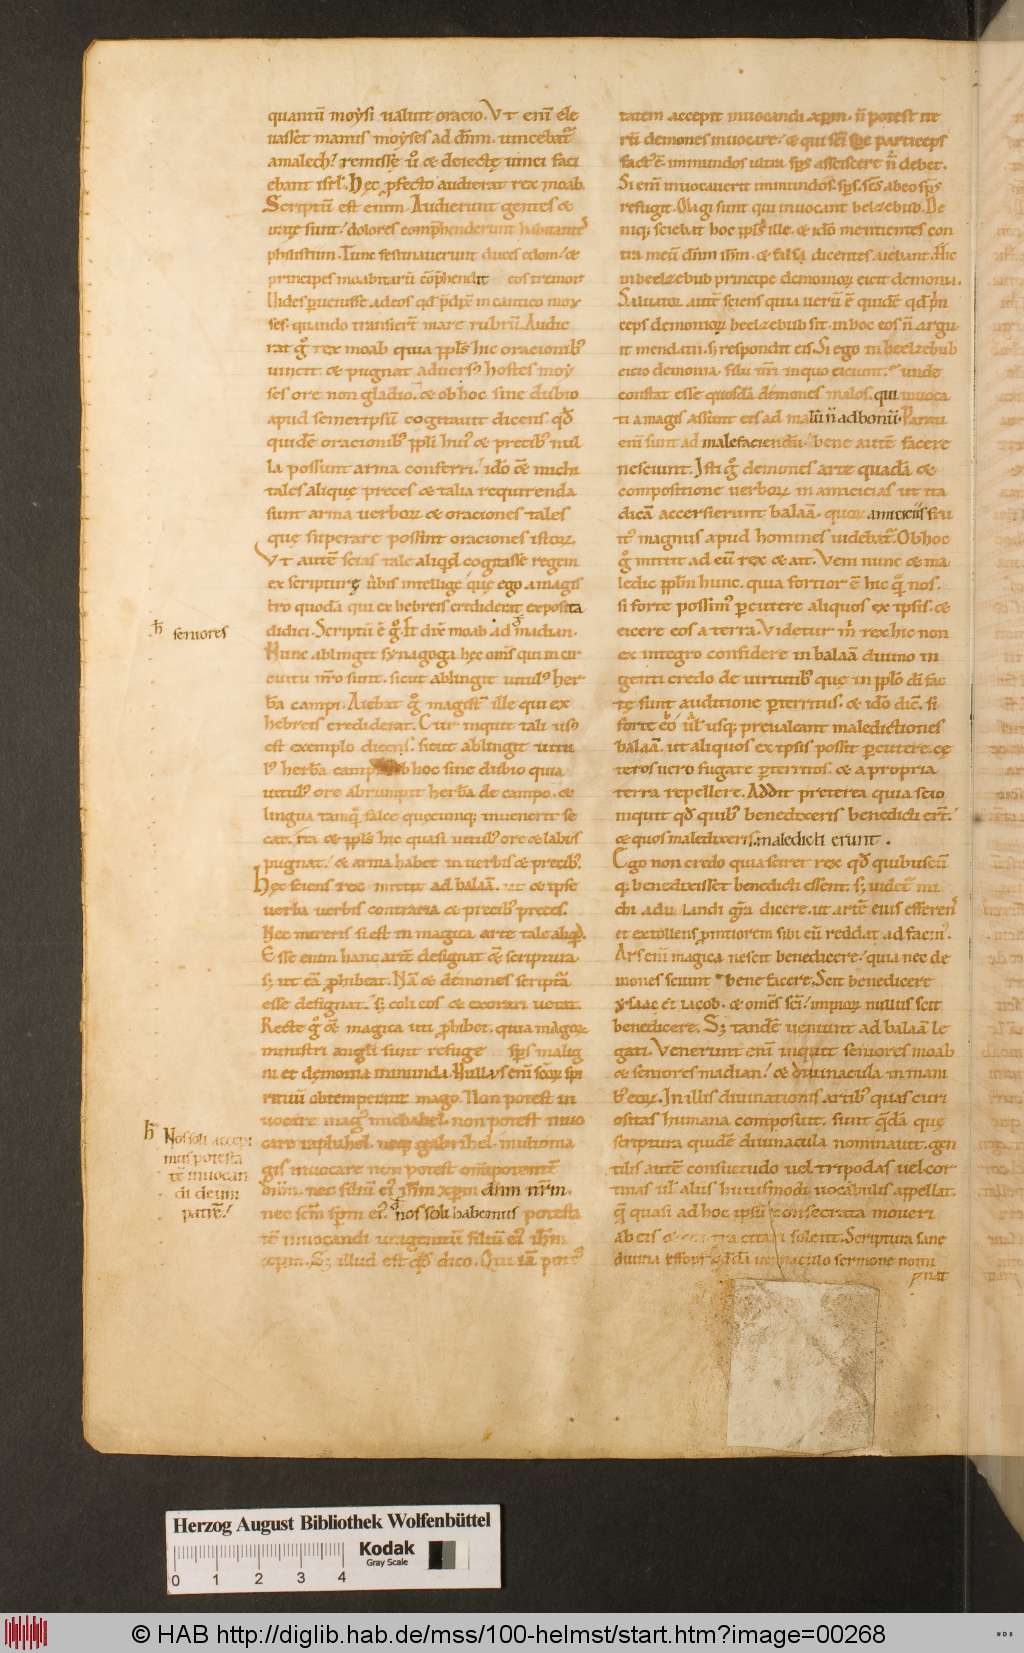 quantū moysi ualuit oracio. Vt enī ele
uasset manus moyses ad dn̄m. uincebat᷑
amalech. remissę u̅ & deiectę uinci faci
ebant isrl̄. Hęc ꝓfecto audierat rex moab.
Scriptū est enim. Audierunt gentes &
iratę sunt. dolores comp̄henderunt habitantes
philistiim. Tunc festinauerunt duces edom. &
principes moabitarū cōp̄hendit eos tremor
Vides ꝑuenisse ad eos qd̄ p̄dix̄ in cantico moy
ses. quando transiert̄ mare rubrū. Audie
rat g̊ rex moab quia ppl̄s hic oracionib;
uincit & pugnat aduers; hostes moy
ses ore non gladio. & ob hoc sine dubio
apud semetipsū cogitauit dicens. qd̄
quidē oracionib; ppl̄i hui; & precib; nul
la possunt arma conferri. idō &̄ michi
tales aliquę preces & talia requirenda
sunt arma uerboꝝ & oraciones tales
quę superare possint oraciones istoꝝ.
Vt autē scias tale aliqd̄ cogitasse regem
ex scripturę u̅bis intellige quę ego a magis
tro quodā qui ex hebreis crediderat exposita
didici. Scriptū ē g̊. Et dix̄ moab ad madian.
Nunc ablinget synagoga hęc om̄s qui in cir
cuitu nr̄o sunt. sicut ablingit uitul; her
bā campi. Aiebat g̊ magist᷑ ille qui ex
hebreis crediderat. Cur inquit tali us;
est exemplo dicens. sicut ablingit uitu
l; herbā campi. Ob hoc sine dubio quia
uitul; ore abrumpit herbā de campo. &
lingua tamq̄ falce quęcumq; inuenerit se
cat. ita & ppl̄s hic quasi uitul; ore & labiis
pugnat. & arma habet in uerbis & precib;.
Hęc sciens rex mittit ad balaā. ut & ipse
uerba uerbis contraria & precib; preces.
Nec mireris si est in magica arte tale aliqd̄.
Esse enim hanc artē designat &̄ scriptura
s; uti eā ꝓhibeat. Nā & demones scriptā
esse designat. s; coli eos & exorari uetat.
Recte g̊ &̄ magica uti ꝓhibet. quia magoꝝ
ministri angl̄i sunt refugę sp̄s malig
ni et dęmonia inmunda. Nullus enī scōꝝ spi
rituū obtemperant mago. Non potest in
uocare mag; michahel. non potest inuo
care raphahel. neq; gabrihel. multo ma
gis inuocare non potest om̄ipotentē
dm̄. nec filiū ei; ih̄m xp̄m dn̄m nr̄m.
nec scm̄ sp̄m ei;. nos soli habemus potesta
tē inuocandi unigenitū filiū ei; ih̄m
xp̄m. S; illud est qd̄ dico. Qui iā potes
ħ seniores
ħ Nos soli accepi
mus potesta
tē inuocan
di deum
patrē.
tatem accepit inuocandi xp̄m. n̄ potest ite
rū demones inuocare. & qui scī sp̄c particeps
fact; ē inmundos ultra sp̄s assciscere n̄ debet.
Si enī inuocauerit inmundos sp̄s. scs̄ ab eo sp̄s
refugit. Magi sunt qui inuocant belzebub. De
niq; sciebat hoc ppl̄s ille. & idō mentientes con
tra meū dn̄m ih̄m. & falsa dicentes aiebant. Hic
in beelzebub principe demonioꝝ eicit demonia.
Saluator autē sciens quia uerū ē quidē qd̄ p̄n
ceps demonioꝝ beelzebub sit. in hoc eos n̄ argu
it mendatii. s; respondit eis. Si ego in beelzebub
eicio demonia. filii ur̄i in quo eiciunt. unde
constat esse quosdā demones malos. qui inuoca
ti a magis assunt eis ad malū n̄ ad bonū. Parati
enī sunt ad malefaciendū. bene autē facere
nesciunt. Isti g̊ demones arte quadā &
compositione uerboꝝ in amicicias ut ita
dicā accersierunt balaā. quoꝝ amiciciis fre
t; magnus apud homines uidebat᷑. Ob hoc
g̊ mittit ad eū rex & ait. Veni nunc & ma
ledic ppl̄m hunc. quia fortior ē hic q̄ nos.
si forte possim; ꝑcutere aliquos ex ipsis. &
eicere eos a terra. Videtur m̄ rex hic non
ex integro confidere in balaā diuino in
genti credo de uirtutib; quę in ppl̄o dī fac
tę sunt auditione ꝑterritus. & idō dic̄. si
forte ul̄ usq; preualeant maledictiones
balaā. ut aliquos ex ipsis possit ꝑcutere. cę
teros uero fugare ꝑterritos. & a propria
terra repellere. Addit preterea quia scio
inquit qd̄ quib; benedixeris benedicti ert̄.
& quos maledixeris. maledicti erunt.
Ego non credo quia sciret rex qd̄ quibuscū
q; benedixisset benedicti essent. s; uidet᷑ mi
chi adulandi gr̄a dicere. ut artē eius efferen
et extollens promtiorem sibi eū reddat ad facin;.
Ars enī magica nescit benedicere. quia nec de
mones sciunt bene facere. Scit benedicere
ysaac et iacob. & om̄es scī. impioꝝ nullus scit
benedicere. S; tandē ueniunt ad balaā le
gati. Venerunt enī inquit seniores moab
& seniores madian. & diuinacula in mani
b; eoꝝ. In illis diuinationis artib; quas curi
ositas humana composuit. sunt q̄dā quę
scriptura quidē diuinacula nominauit. gen
tilis autē consuetudo uel tripodas uel cor
tinas ul̄ aliis huiusmodi uocabulis appellat.
q̄ quasi ad hoc ipsū consecrata moueri
ab eis & contractari solent. Scriptura sane
diuina q̄dā uernaculo sermone nomi
nat
Herzog August Bibliothek Wolfenbüttel
Kodak
Gray Scale
0 1 2 3 4
© HAB http://diglib.hab.de/mss/100-helmst/start.htm?image=00268